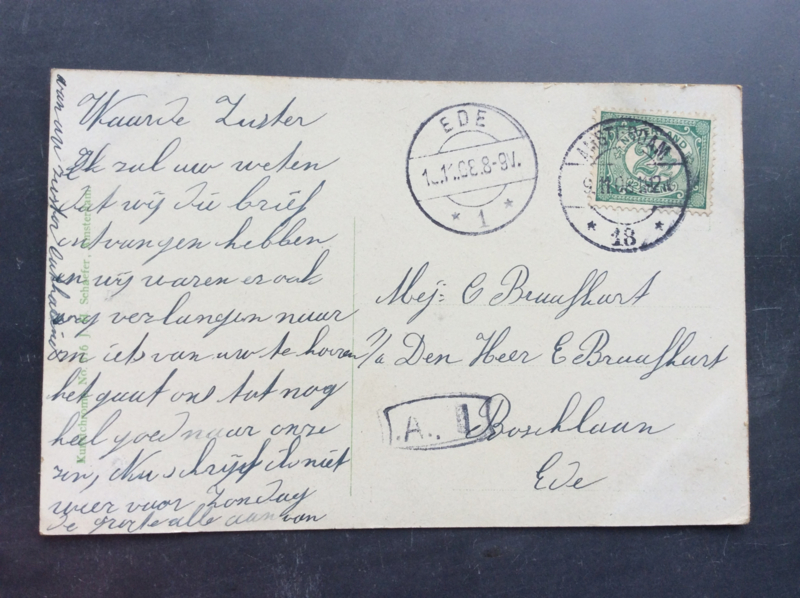 Waarde Zuster
Ik zal uw weten
dat wij du brief
ontvangen hebben
en wij waren er ook
erg verlangen naar
om iets van uw te hooren
het gaat ons tot nog
heel goed naar onze
zin, Nu schrijf ik niet
weer voor Zondag
de groete alle aan van
van uw zuster
Schaefer, Amsterdam
EDE
1
AMSTERDAM
18
2½
Mej: C Braafhart
p/a Den Heer E Braafhart
Boschlaan
Ede
.A.